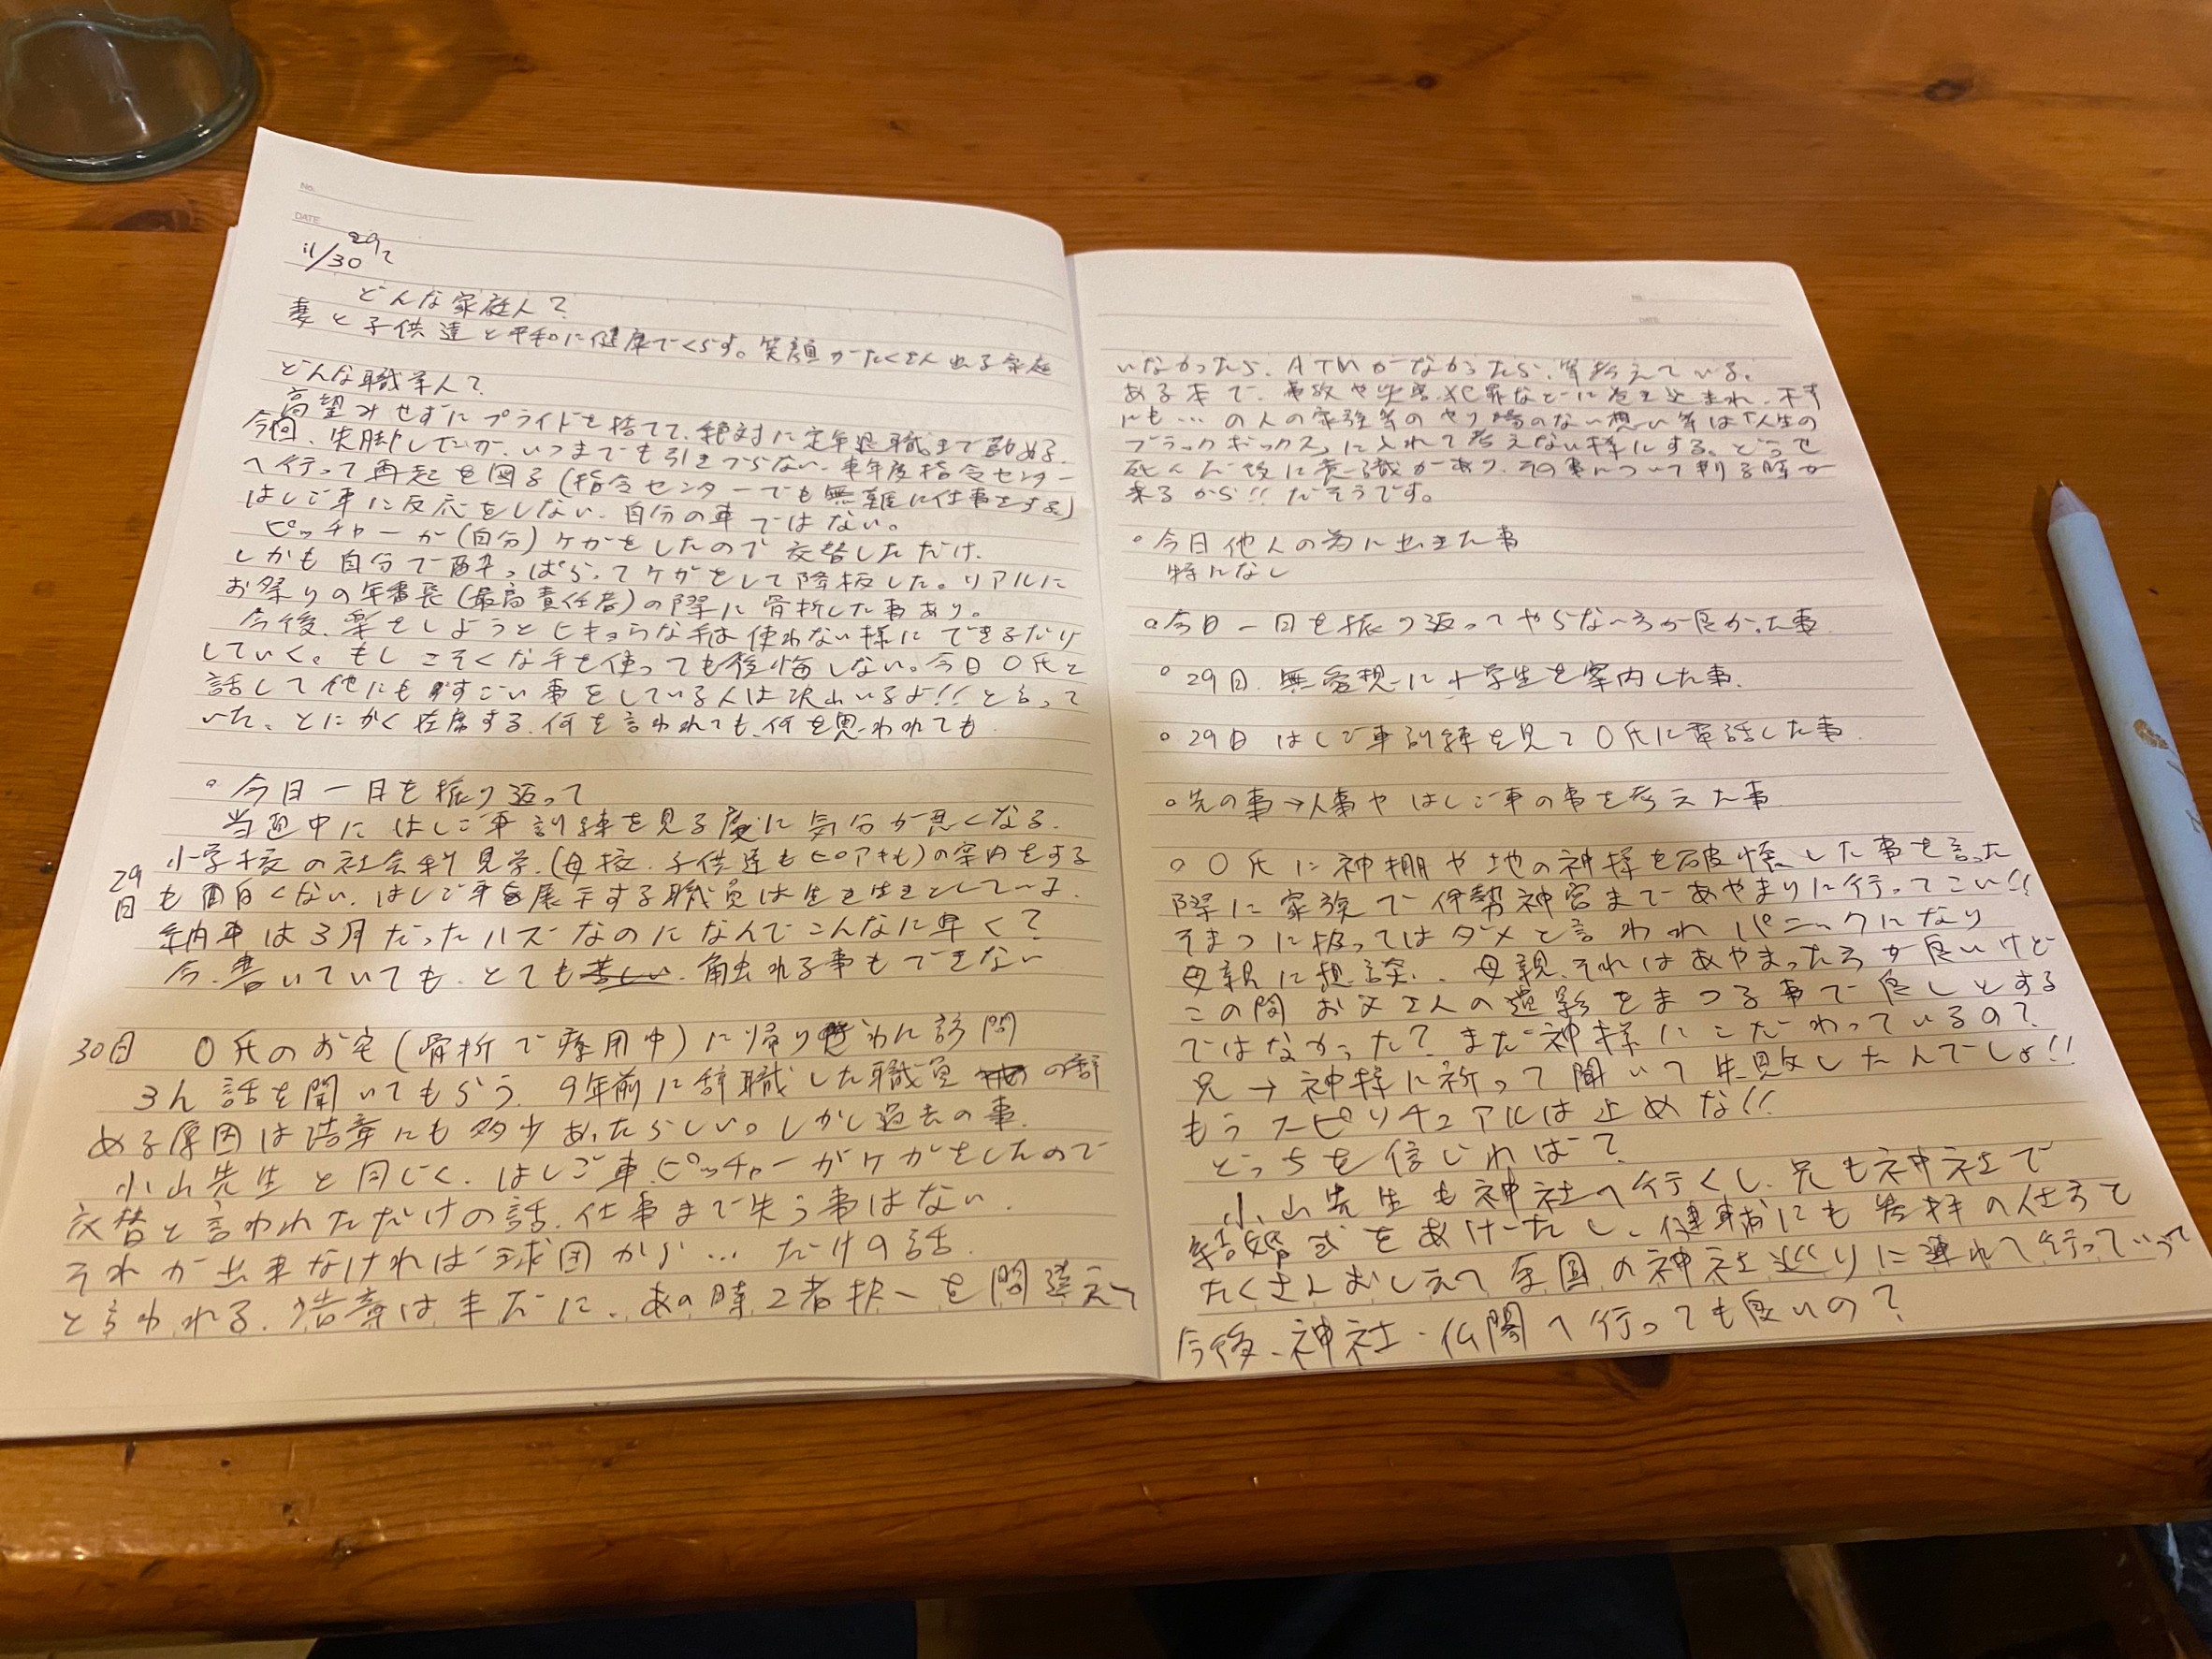 No.
DATE
29
11/30
どんな家庭人?
妻と子供達と平和に健康でくらす。笑顔がたくさん 家庭
どんな職業人?
高望みせずにプライドを捨てて、絶対に定年退職まで勤める。
今回、失脚したが、いつまでも引きづらない。来年度指令センター
へ行って再起を図る(指令センターでも無難に仕事をする)
はしご車に反応をしない、自分の車ではない。
ピッチャーが(自分)ケガをしたので交替しただけ、
しかも自分で酔っぱらってケガをして降板した。リアルに
お祭りの年番長(最高責任者)の際に骨折した事あり。
今後、楽をしようとヒキョウな手は使わない様にできるだけ
していく。もしこそくな手を使っても後悔しない。今日O氏と
話して他にもすごい事をしている人は沢山いるよ!!と言って
いた、とにかく在席する、何を言われても、何を思われても
。今日一日を振り返って
当直中にはしご車訓練を見る度に気分が悪くなる。
29日
小学校の社会科見学(母校、子供達も )の案内をする
も面白くない、はしご車を展示する職員は生き生きとしている。
納車は3月だったハズなのになんでこんなに早く?
今、書いていても、とても苦しい、触れる事もできない
30日 O氏のお宅(骨折で療用中)に帰り に訪問
3人 話を聞いてもらう。9年前に辞職した職員 の辞
める原因は にも多少あったらしい。しかし過去の事。
小山先生と同じく、はしご車、ピッチャーがケガをしたので
交替と言われただけの話、仕事まで失う事はない。
それが出来なければ球団から…だけの話。
と言われる。 は未だに、あの時2者択一を間違えて
いなかったら、ATMがなかったら、等考えている。
ある本で、事故や災害、犯罪などに巻き込まれ、
にも…の人の家族等のやり場のない想い等は「人生の
ブラックボックス」に入れて考えない様にする。どうせ
死んだ後に意識があり、その事について判る時が
来るから!!だそうです。
。今日他人の為に出来た事
特になし
。今日一日を振り返ってやらない方が良かった事
。29日、無愛想に小学生を案内した事。
。29日 はしご車訓練を見てO氏に電話した事。
。先の事→人事やはしご車の事を考えた事
。O氏に神棚や地の神様を破壊した事を言った
際に家族で伊勢神宮まであやまりに行ってこい!!
そまつに扱ってはダメと言われパニックになり
母親に相談、母親、それはあやまった方が良いけど
この間お父さんの遺影をまつる事で良しとする
ではなかった?まだ神様にこだわっているの?
兄→神様に祈って聞いて失敗したんでしょ!!
もうスピリチュアルは止めな!!
どっちを信じれば?
小山先生も神社へ行くし、兄も神社で
結婚式をあげたし、健輔にも参拝の仕方を
たくさんおしえて全国の神社巡りに連れて行っていって
今後、神社・仏閣へ行っても良いの?